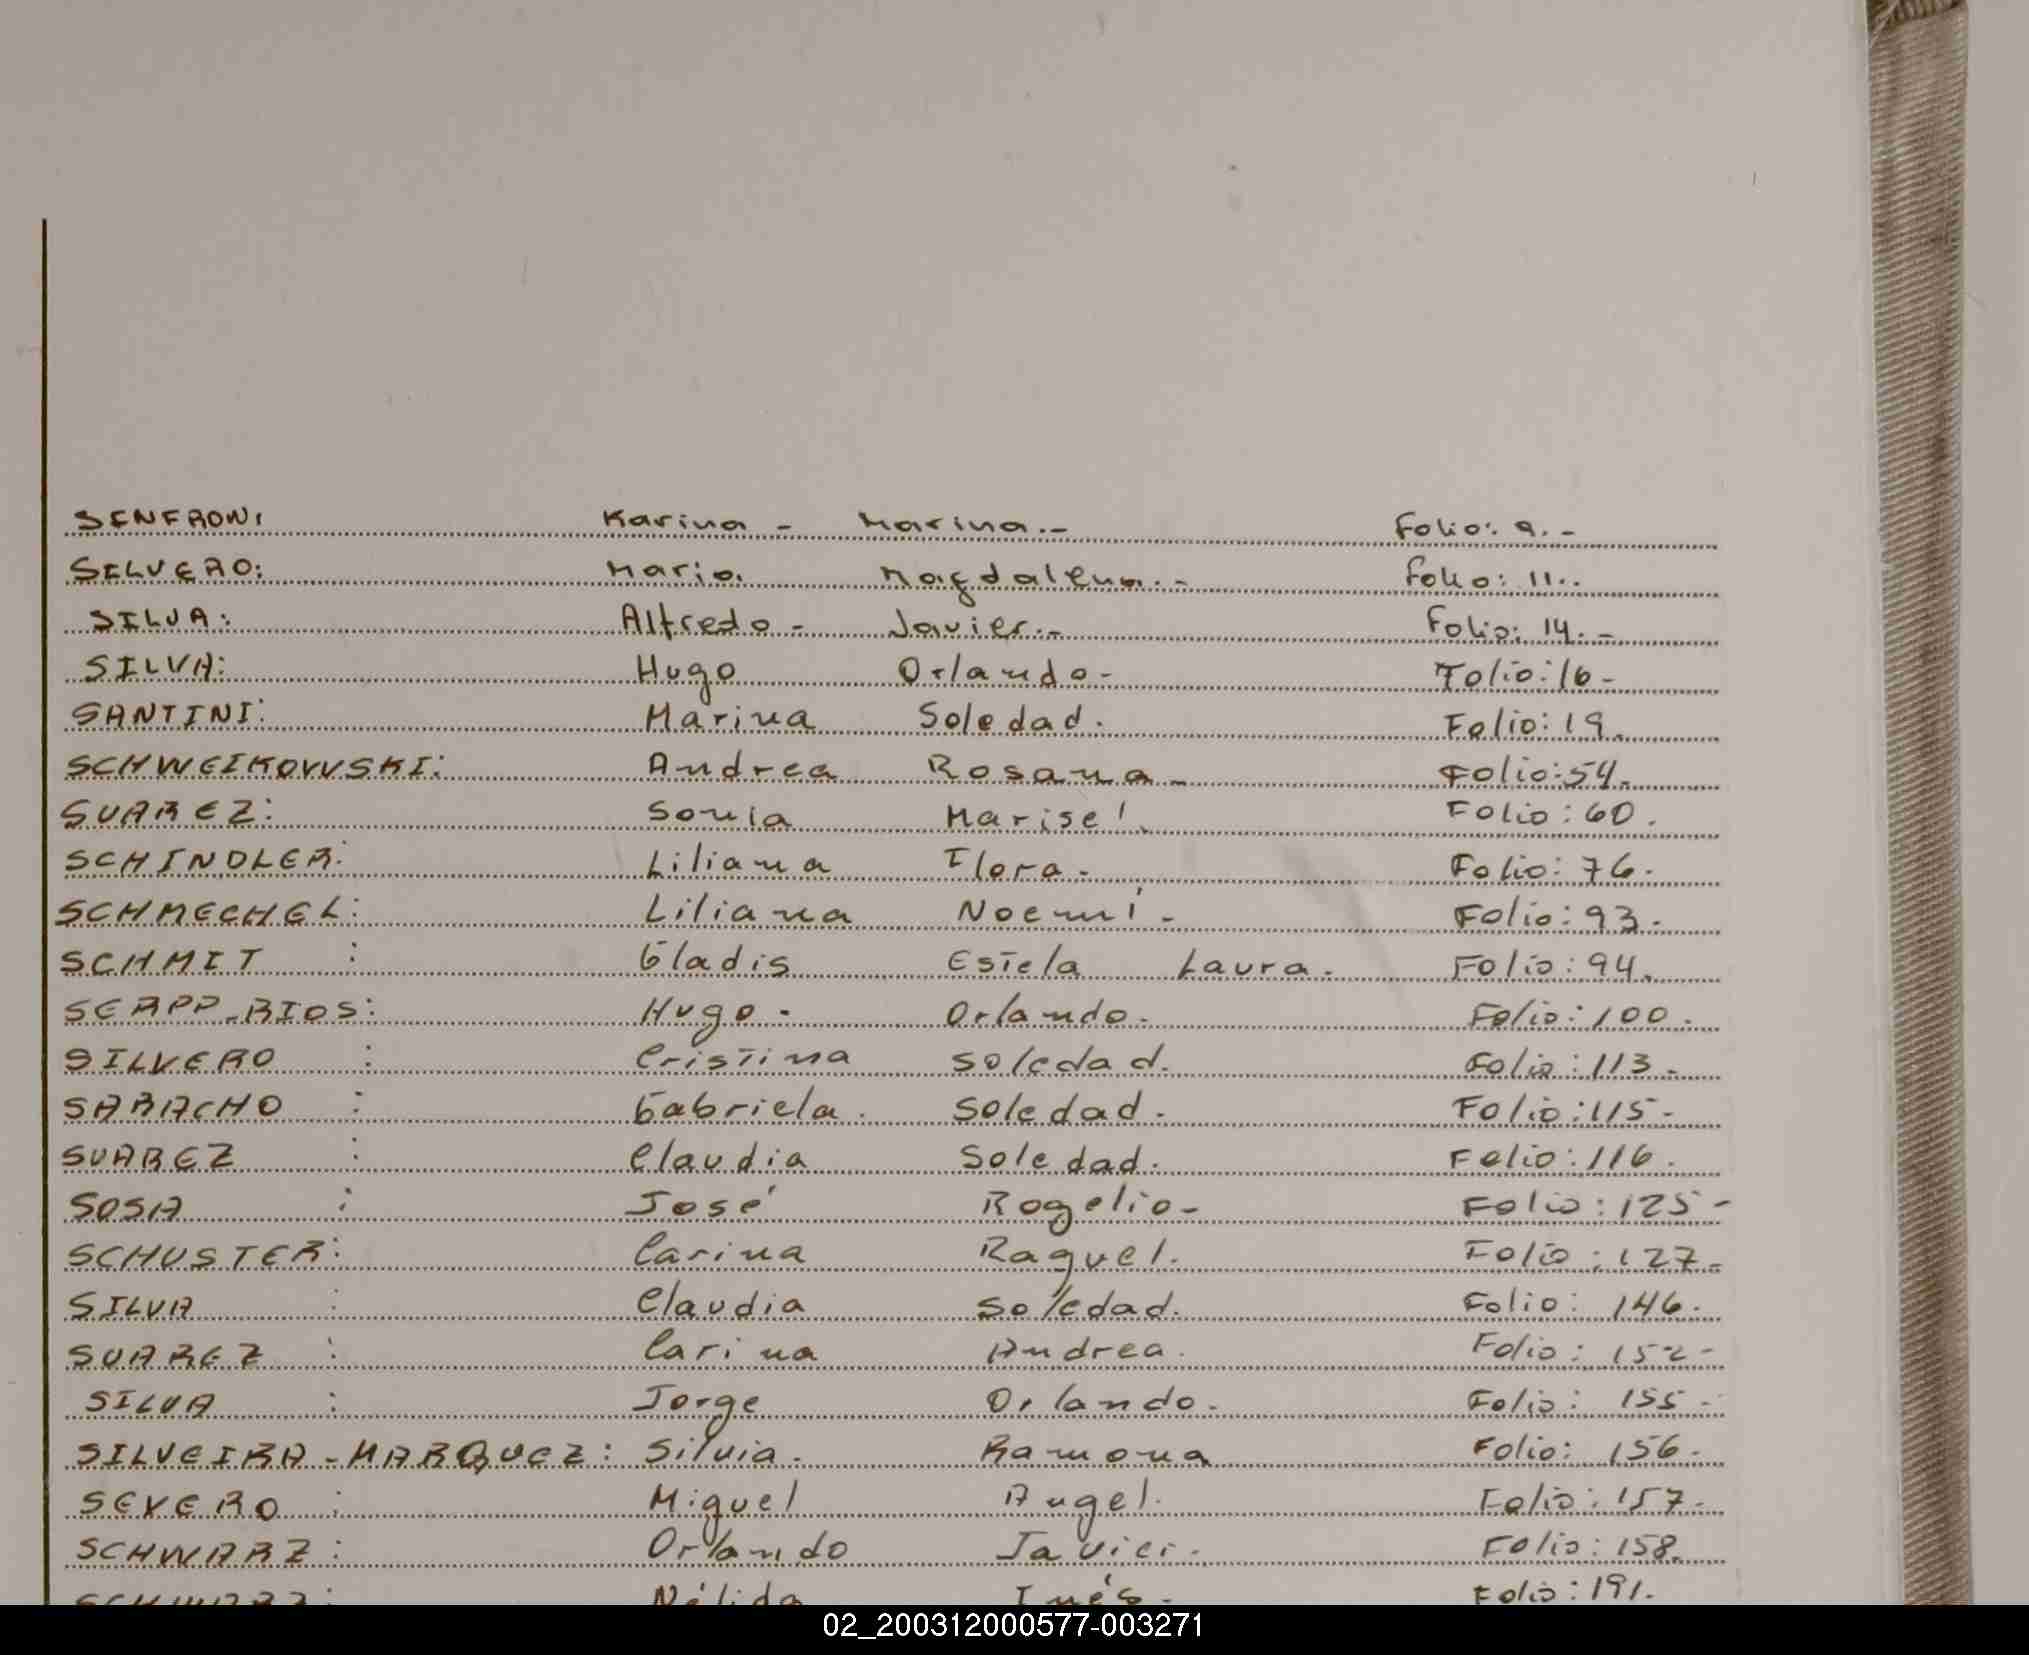 SENFRON: Karina - Marina.- Folio: 9.-
SILVERO: Maria. Magdalena.- Folio: 11..
SILVA: Alfredo - Javier.- Folio: 14.-
SILVA: Hugo Orlando- Folio: 16-
SANTINI: Marina Soledad. Folio: 19.
SCHWEIKOVVSKI: Andrea Rosana- Folio: 54.
SUAREZ: Sonia Marisel. Folio: 60.
SCHINDLER: Liliana Flora. Folio: 76.
SCHMECHEL: Liliana Noemí- Folio: 93.
SCHMIT : Gladis Estela Laura. Folio: 94.
SEAPP-RIOS: Hugo. Orlando. Folio: 100.
SILVERO : Cristina Soledad. Folio: 113.
SARACHO : Gabriela. Soledad. Folio: 115.
SUAREZ : Claudia Soledad. Folio: 116.
SOSA : José Rogelio- Folio: 125-
SCHUSTER: Carina Raquel. Folio: 127.
SILVA : Claudia Soledad. Folio: 146.
SUAREZ : Carina Andrea. Folio: 152-
SILVA : Jorge Orlando. Folio: 155-
SILVEIRA-MARQUEZ: Silvia. Ramona Folio: 156.
SEVERO : Miguel Angel. Folio: 157.
SCHWARZ : Orlando Javier. Folio: 158.
SCHWARZ: Nélida Inés. Folio: 191.
02_200312000577-003271